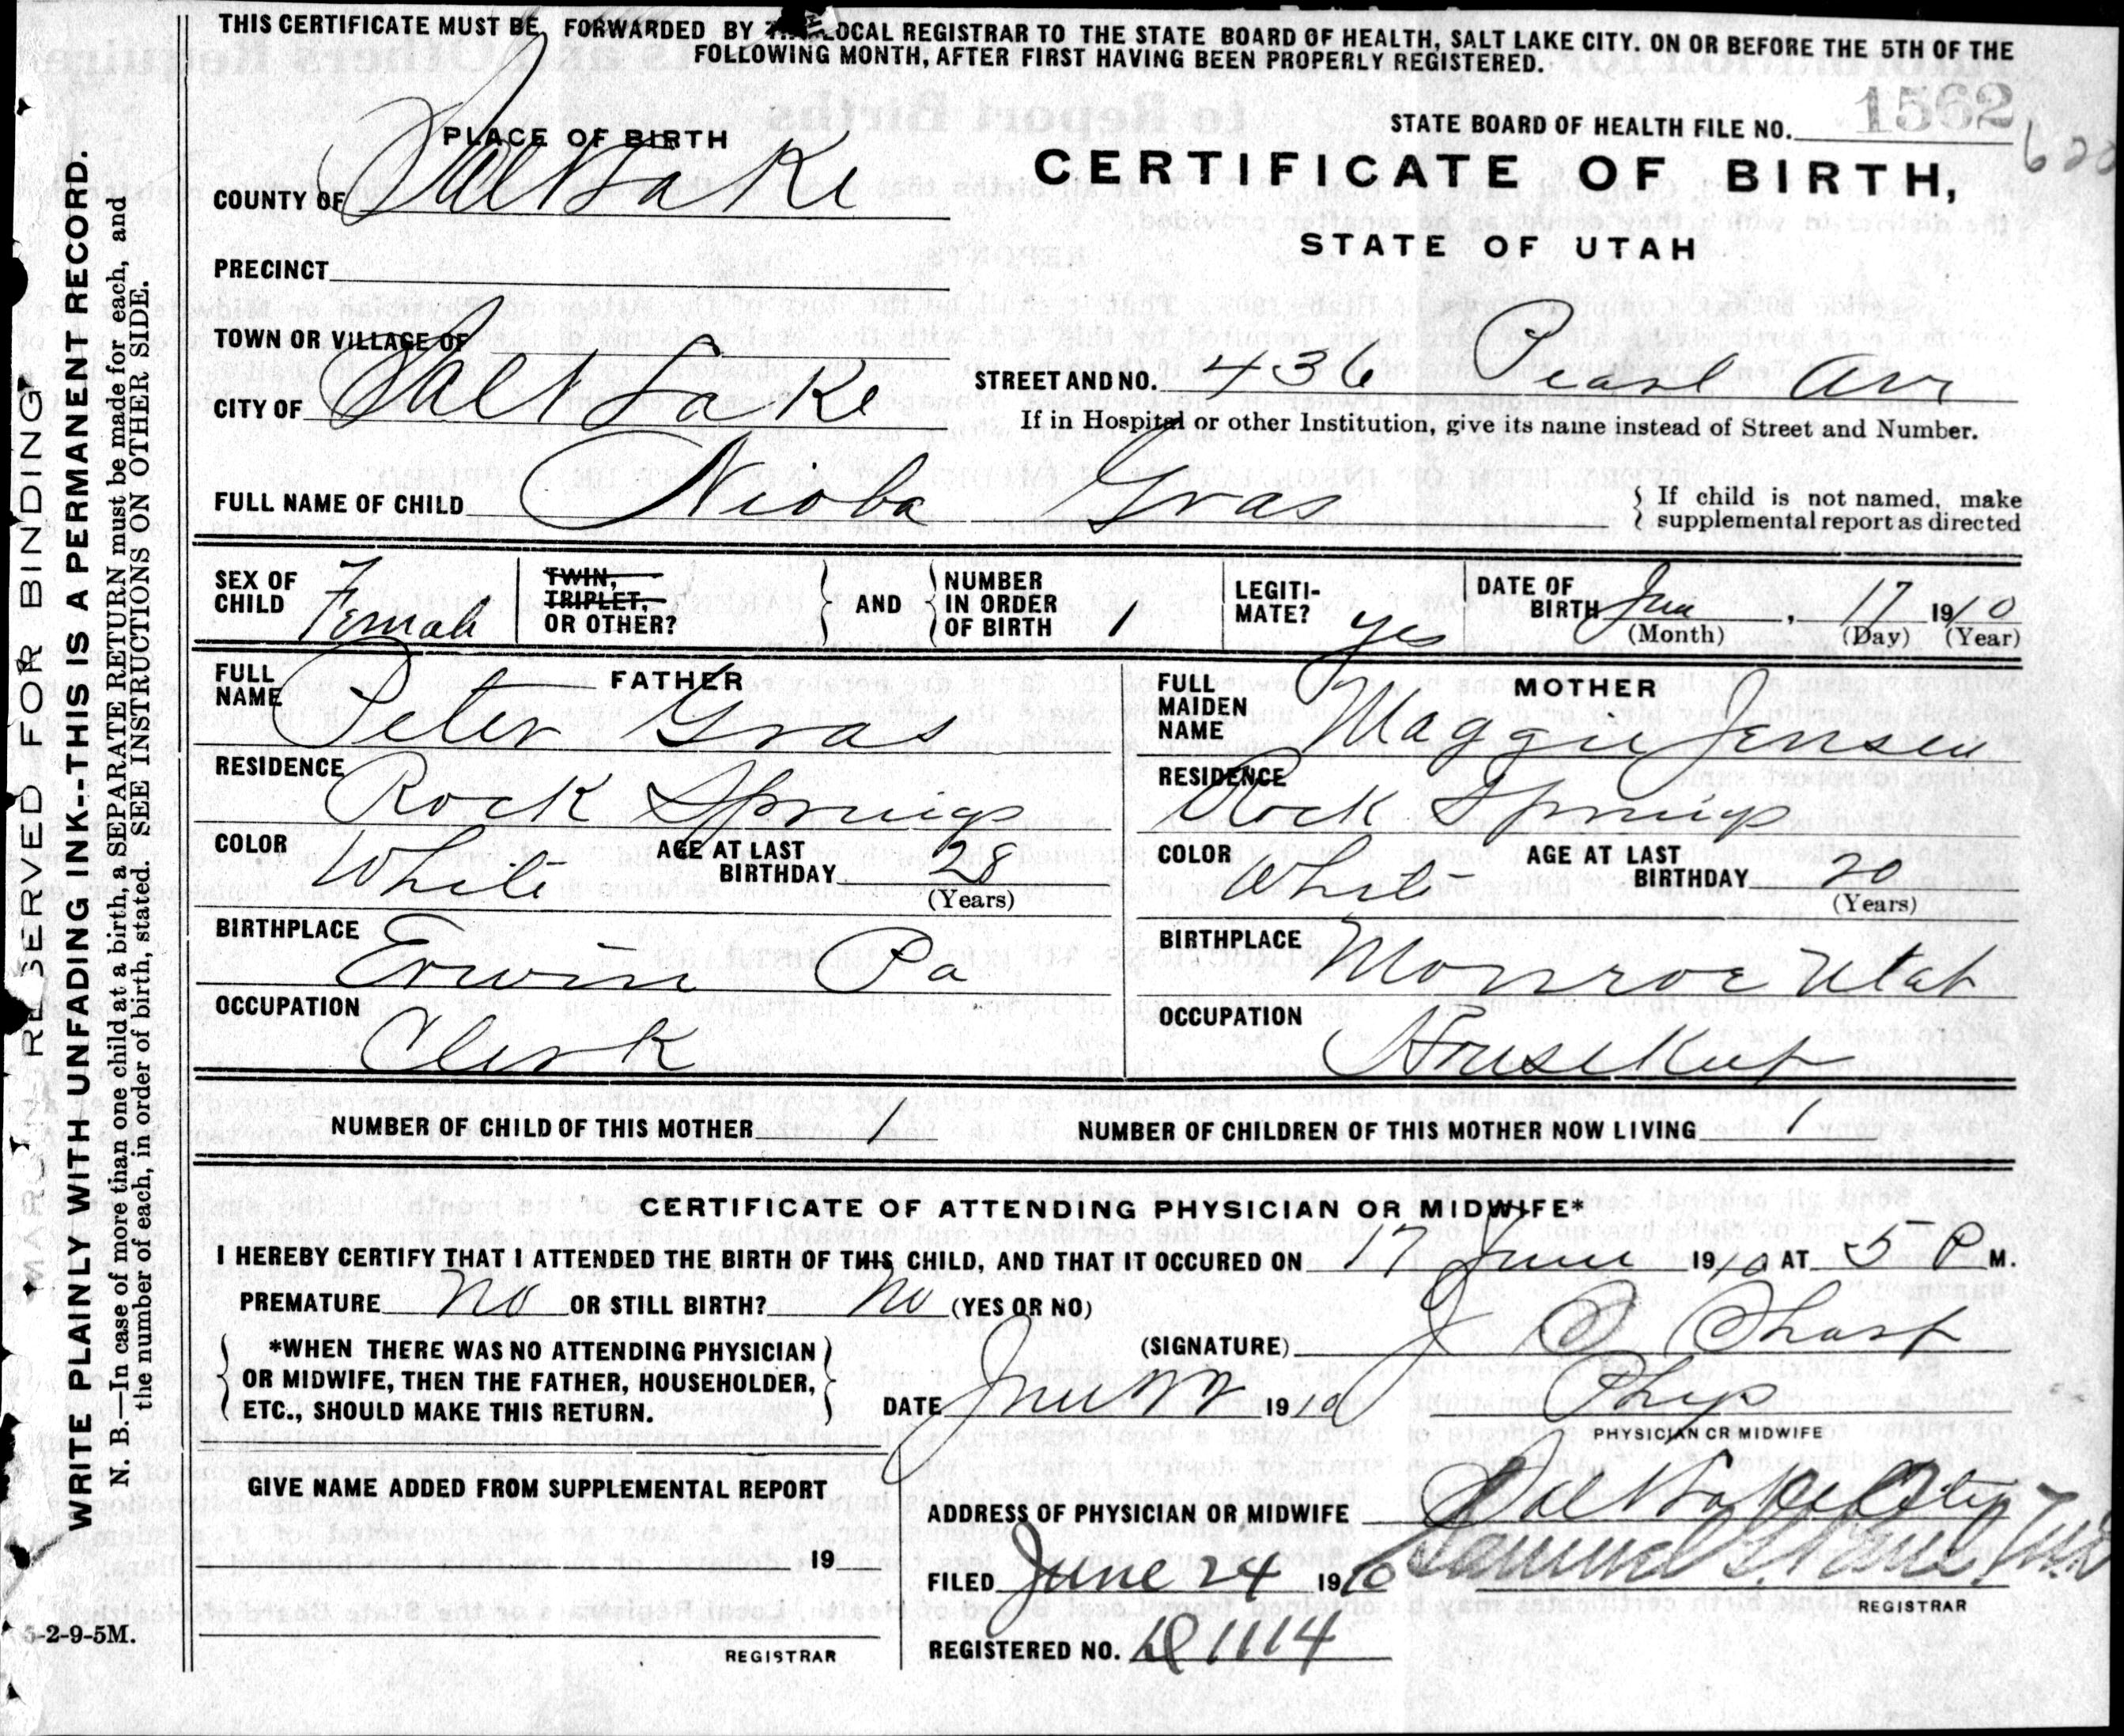 THIS CERTIFICATE MUST BE FORWARDED BY LOCAL REGISTRAR TO THE STATE BOARD OF HEALTH, SALT LAKE CITY, ON OR BEFORE THE 5TH OF THE
FOLLOWING MONTH, AFTER FIRST HAVING BEEN PROPERLY REGISTERED.
RESERVED FOR BINDING
WRITE PLAINLY WITH UNFADING INK--THIS IS A PERMANENT RECORD.
N. B.—In case of more than one child at a birth, a SEPARATE RETURN must be made for each, and
the number of each, in order of birth, stated. SEE INSTRUCTIONS ON OTHER SIDE.
STATE BOARD OF HEALTH FILE NO. 1562
620
PLACE OF BIRTH
CERTIFICATE OF BIRTH,
COUNTY OF Salt Lake
STATE OF UTAH
PRECINCT
TOWN OR VILLAGE OF
CITY OF Salt Lake STREET AND NO. 436 Pearl Ave
If in Hospital or other Institution, give its name instead of Street and Number.
FULL NAME OF CHILD Nioba Gras
If child is not named, make
supplemental report as directed
SEX OF CHILD Female TWIN, TRIPLET, OR OTHER? AND NUMBER IN ORDER OF BIRTH 1 LEGITI-MATE? yes DATE OF BIRTH Jun, 17 1910
(Month) (Day) (Year)
FATHER
FULL NAME Peter Gras
RESIDENCE Rock Springs
COLOR White AGE AT LAST BIRTHDAY 28
(Years)
BIRTHPLACE Erwin Pa
OCCUPATION Clerk
MOTHER
FULL MAIDEN NAME Maggie Jensen
RESIDENCE Rock Springs
COLOR White AGE AT LAST BIRTHDAY 20
(Years)
BIRTHPLACE Monroe Utah
OCCUPATION Housekeep
NUMBER OF CHILD OF THIS MOTHER 1 NUMBER OF CHILDREN OF THIS MOTHER NOW LIVING 1
CERTIFICATE OF ATTENDING PHYSICIAN OR MIDWIFE*
I HEREBY CERTIFY THAT I ATTENDED THE BIRTH OF THIS CHILD, AND THAT IT OCCURED ON 17 June 1910 AT 5 P M.
PREMATURE No OR STILL BIRTH? No (YES OR NO)
*WHEN THERE WAS NO ATTENDING PHYSICIAN
OR MIDWIFE, THEN THE FATHER, HOUSEHOLDER,
ETC., SHOULD MAKE THIS RETURN.
(SIGNATURE) J Sharp
DATE June 22 1910 Phys
PHYSICIAN OR MIDWIFE
GIVE NAME ADDED FROM SUPPLEMENTAL REPORT
19
REGISTRAR
ADDRESS OF PHYSICIAN OR MIDWIFE Salt Lake City
FILED June 24 1910 Samuel
REGISTRAR
REGISTERED NO. 1114
5-2-9-5M.